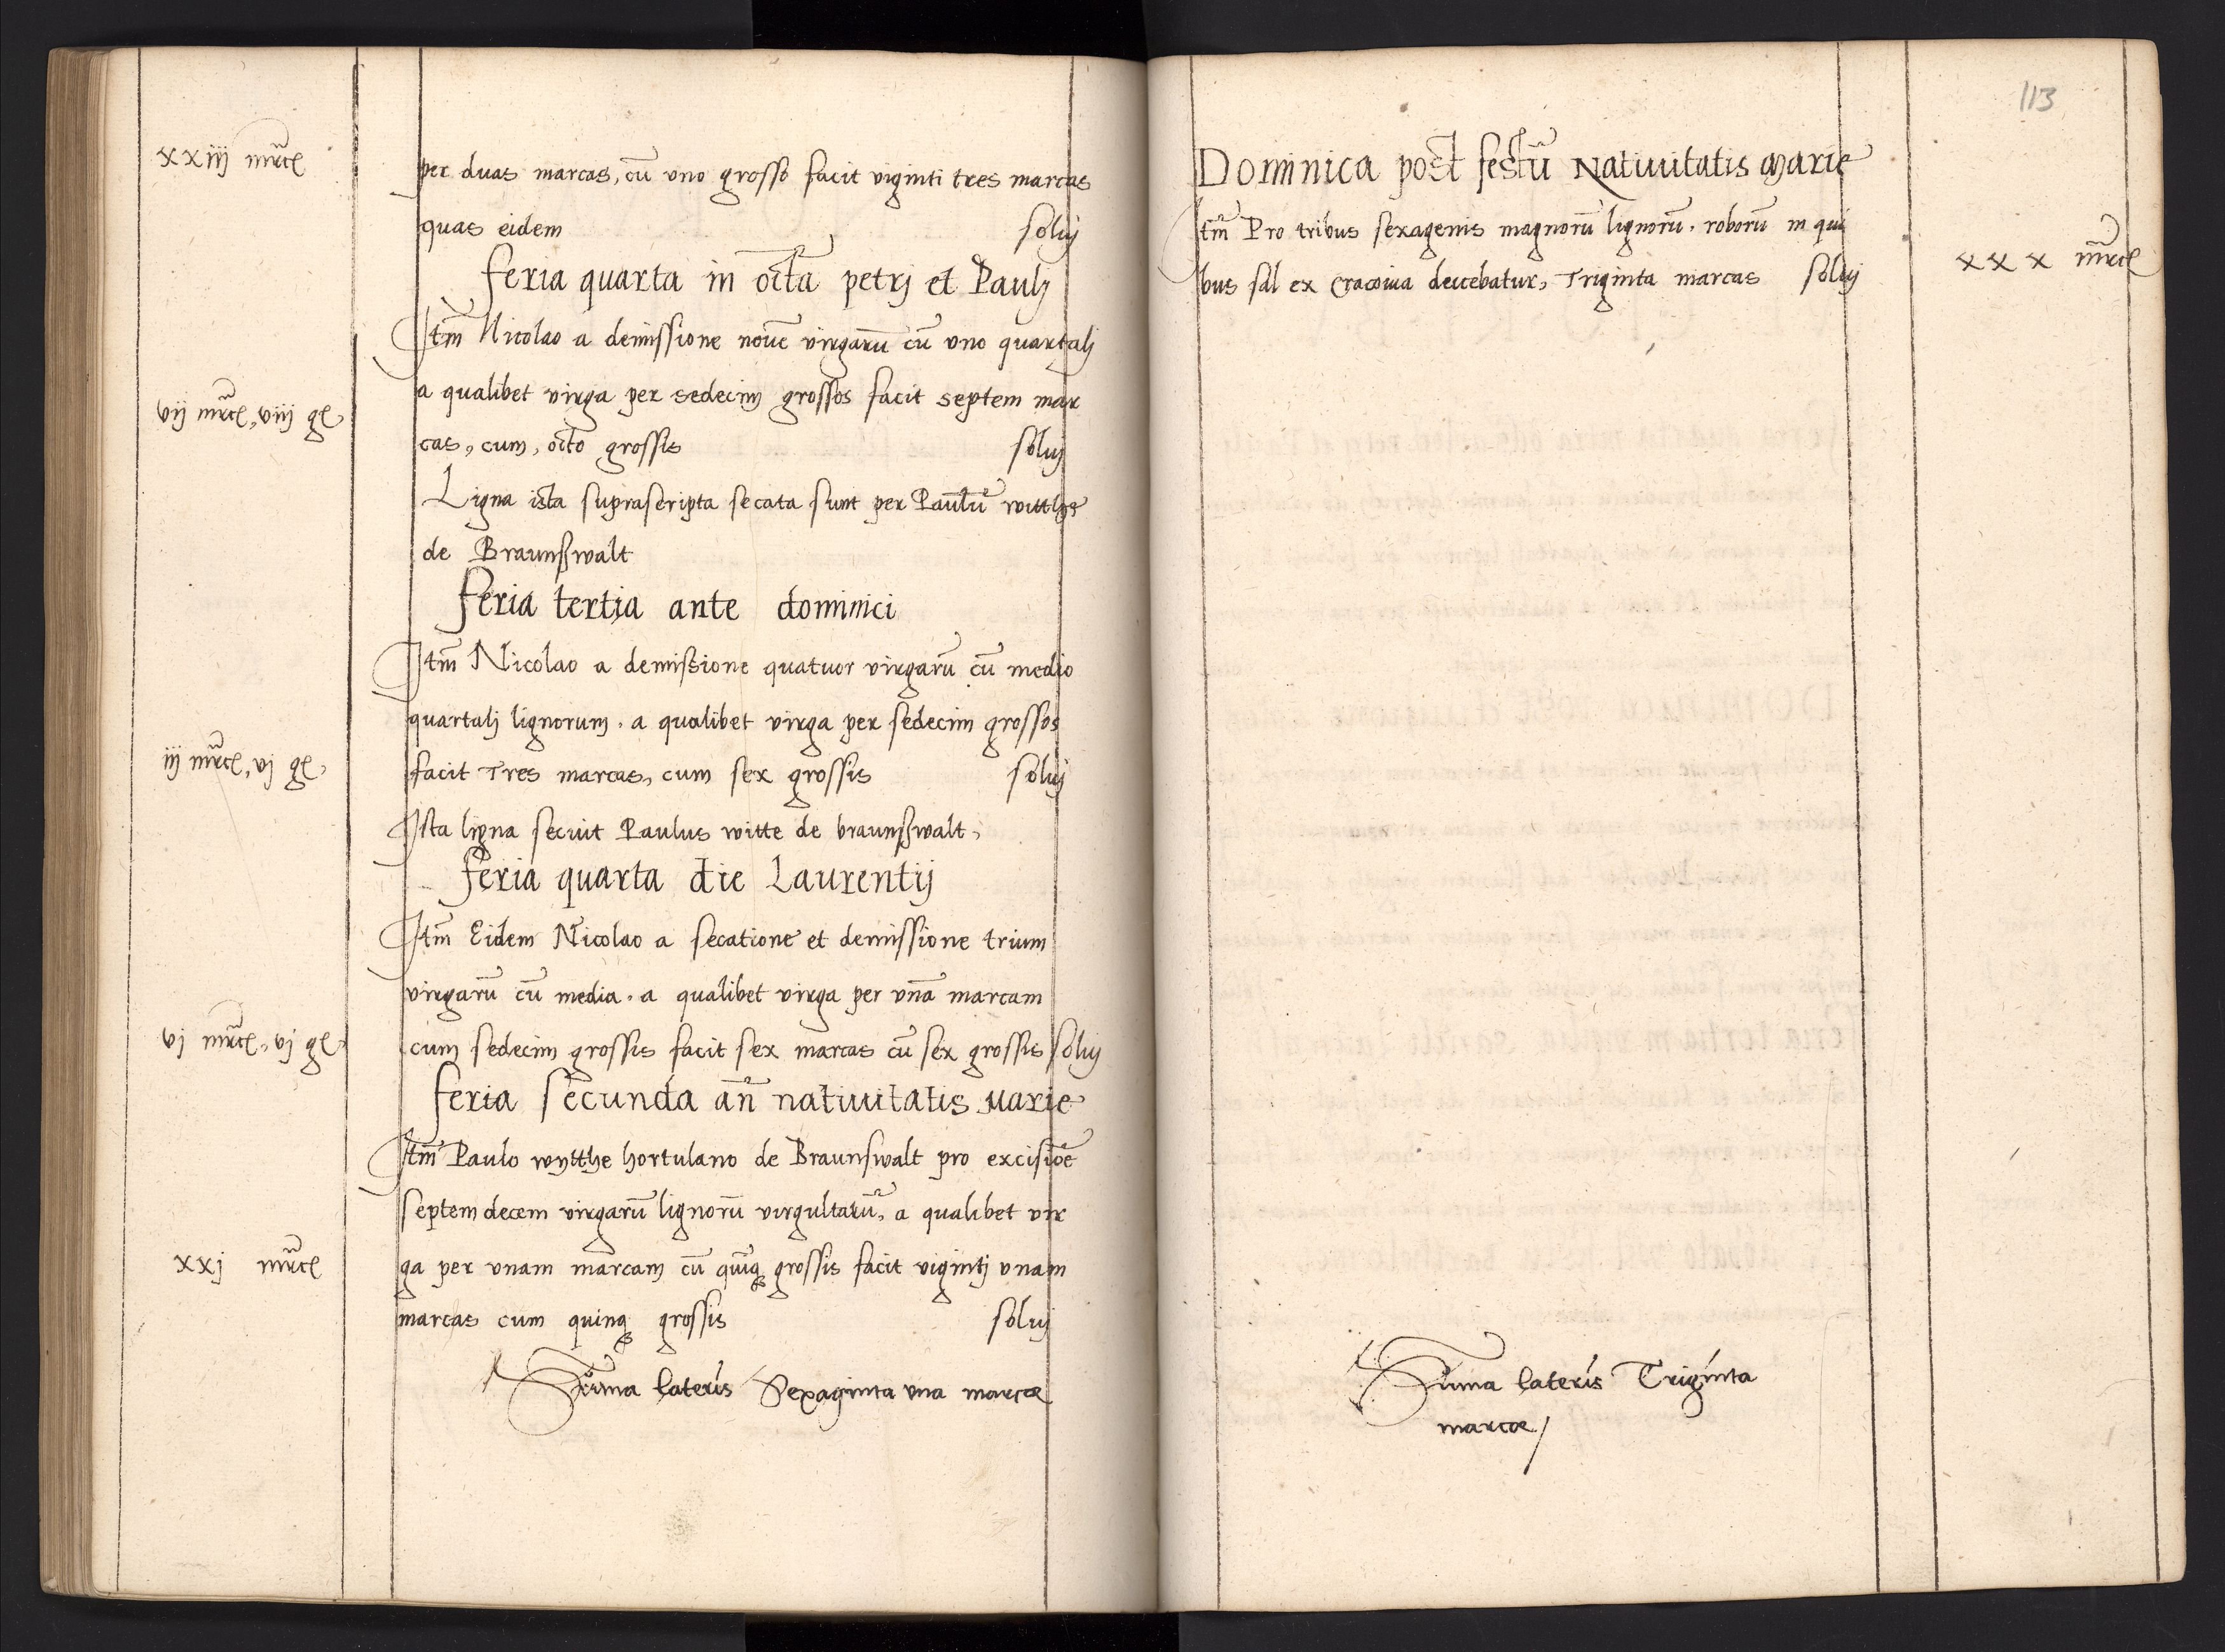 xxiij mrc
per duas marcas, cũ vno grosso facit viginti tres marcas
quas eidem soluj
feria quarta in octa petrj et Paulj
Itm Nicolao a demissione noue virgarũ cũ vno quartalj
a qualibet virga per sedecim grossos facit septem mar
vij mrc, viij g
cas, cum, octo grossis soluj
Ligna ista suprascripta secata sunt per Paulũ witthe
de Braunßwalt
feria tertia ante dominici
Itm Nicolao a demißione quatuor virgarũ cũ medio
quartalj lignorum . a qualibet virga per sedecim grossos
iij mrc, vj g
facit Tres marcas, cum sex grossis soluj
Ista ligna secuit Paulus witte de braunßwalt,
feria quarta die Laurentij
Itm Eidem Nicolao a secatione et demissione trium
virgarũ cũ media . a qualibet virga per vnã marcam
vj mrc, vj g
cum sedecim grossis facit sex marcas cũ sex grossis soluj
feria secunda añ natiuitatis marie
Itm Paulo wytthe hortulano de Braunswalt pro excisiõe
septem decem virgarũ lignorũ virgultarũ, a qualibet vir
xxj mrc
ga per vnam marcam cũ quĩq grossis facit vigintj vnam
marcas cum quinq grossis soluj
Sũma lateris Sexaginta vna marcae
113
Dominica post festũ Natiuitatis Marie
Itm Pro tribus sexagenis magnorũ lignorũ . roborũ in qui
xxx mrc
bus sal ex Cracouia deicebatur, Triginta marcas soluj
Sũma lateris Triginta
marcae/